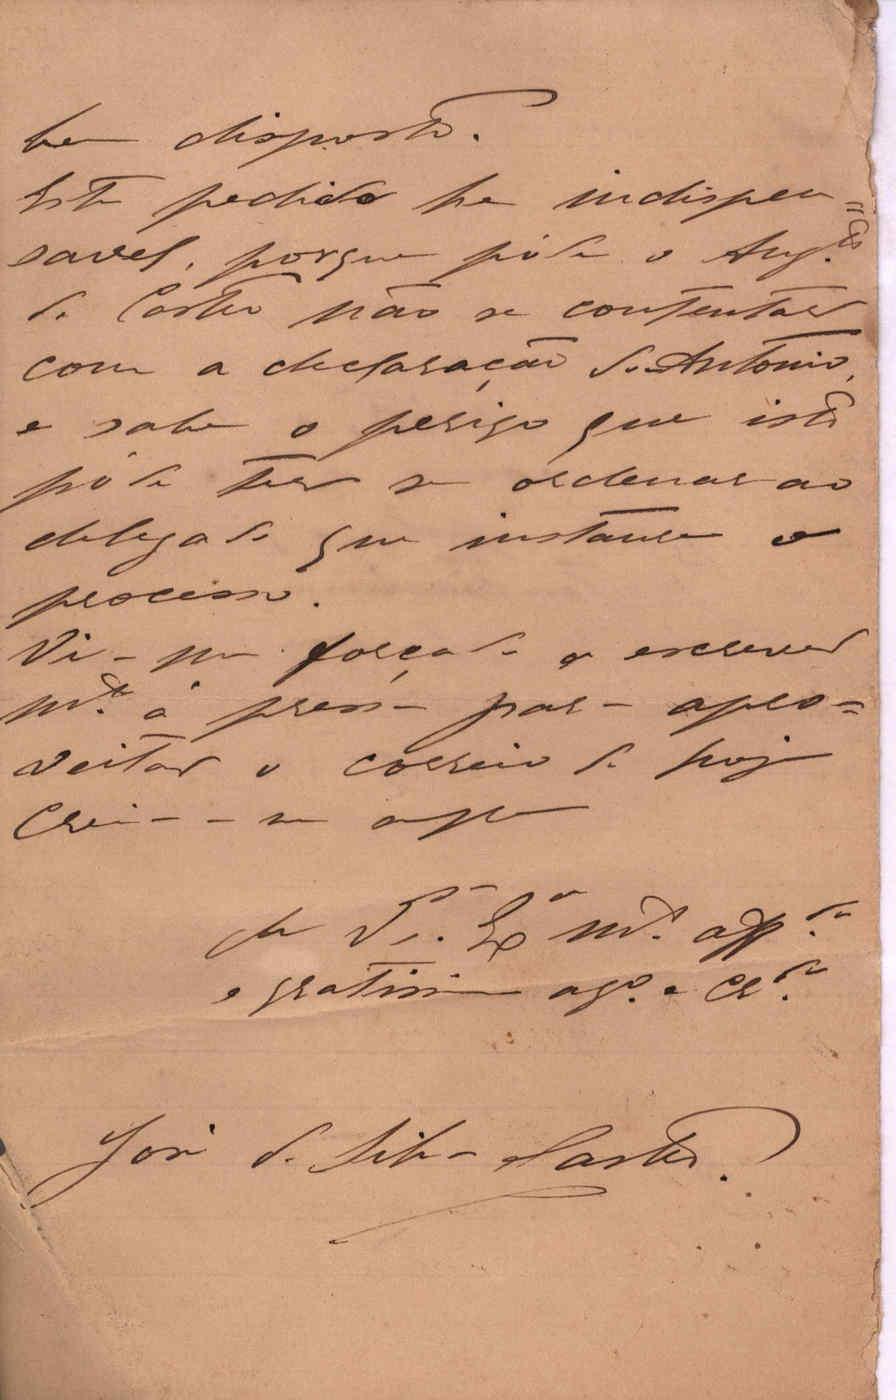 bem disposto.
Este pedido he indispen=
savel, porque póde o Aug.to
de Castro não se contentar
com a declaração do Antonio,
e sabe o perigo que isto
póde ter se ordenar ao
delegado que instaure o
processo.
Vi-me forçado a escrever
m.to á pressa para apro=
veitar o correio de hoje
Creia-me sempre
de V.ª Ex.ª m.to aff.do
e gratissimo am.o e cr.do
José da Silva Castro.